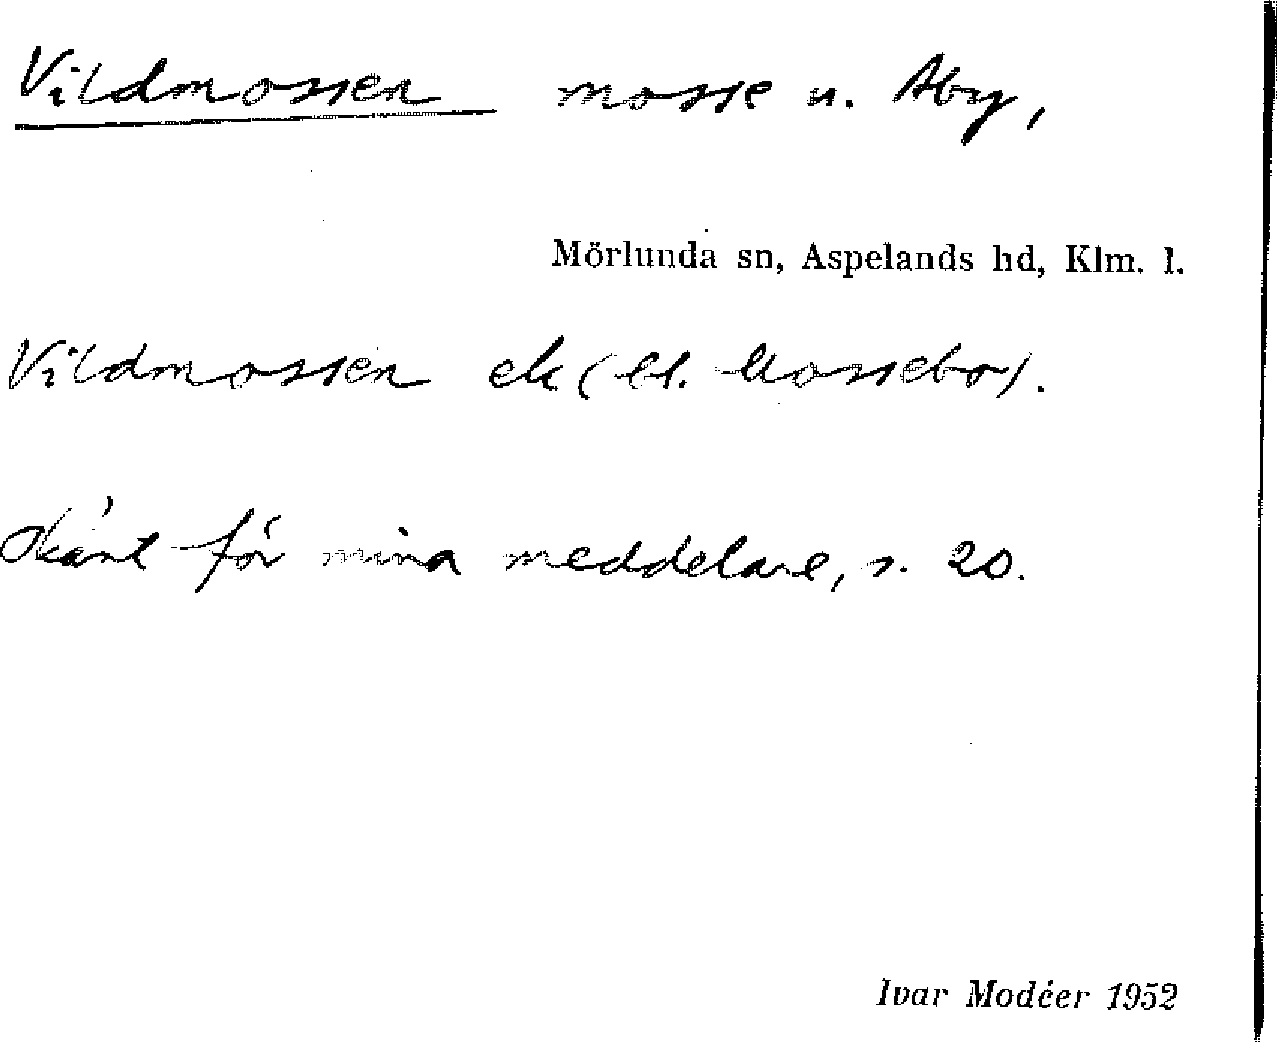 Vildmossen mosse u. Åby,
Mörlunda sn, Aspelands hd, Klm. l.
Vildmossen ek (bl. Mossebo).
Okänt för mina meddelare, s. 20.
Ivar Modéer 1952